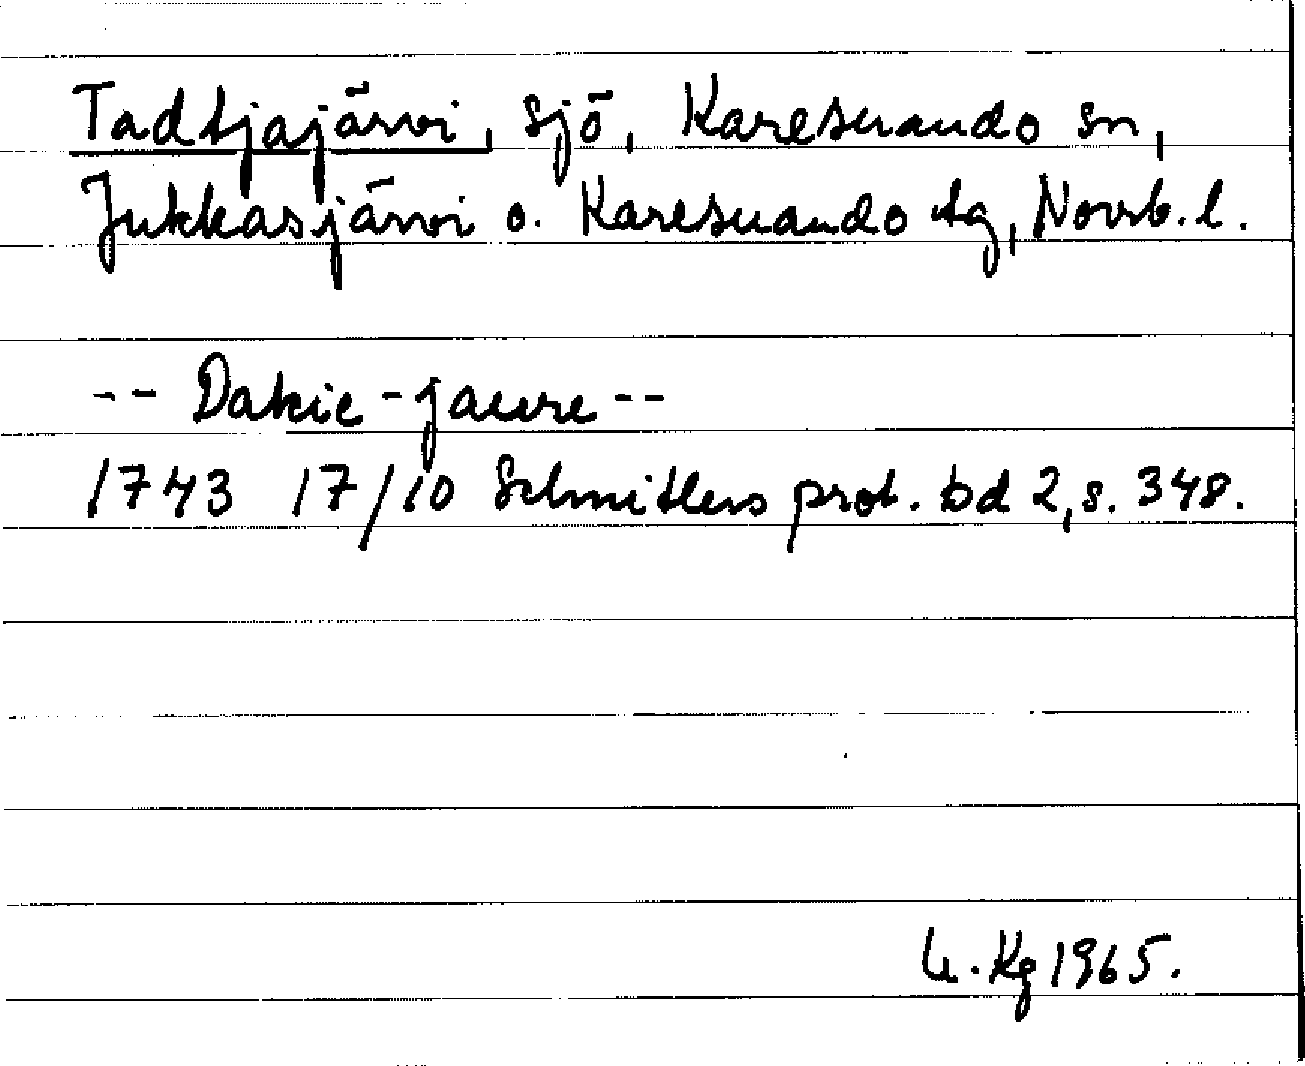 Tadtjajärvi, sjö, Karesuando sn,
Jukkasjärvi o. Karesuando tg, Norrb. l.
-- Dakie-jaure --
1743 17/10 Schnitlers prot. bd 2, s. 348.
U. Kg 1965.